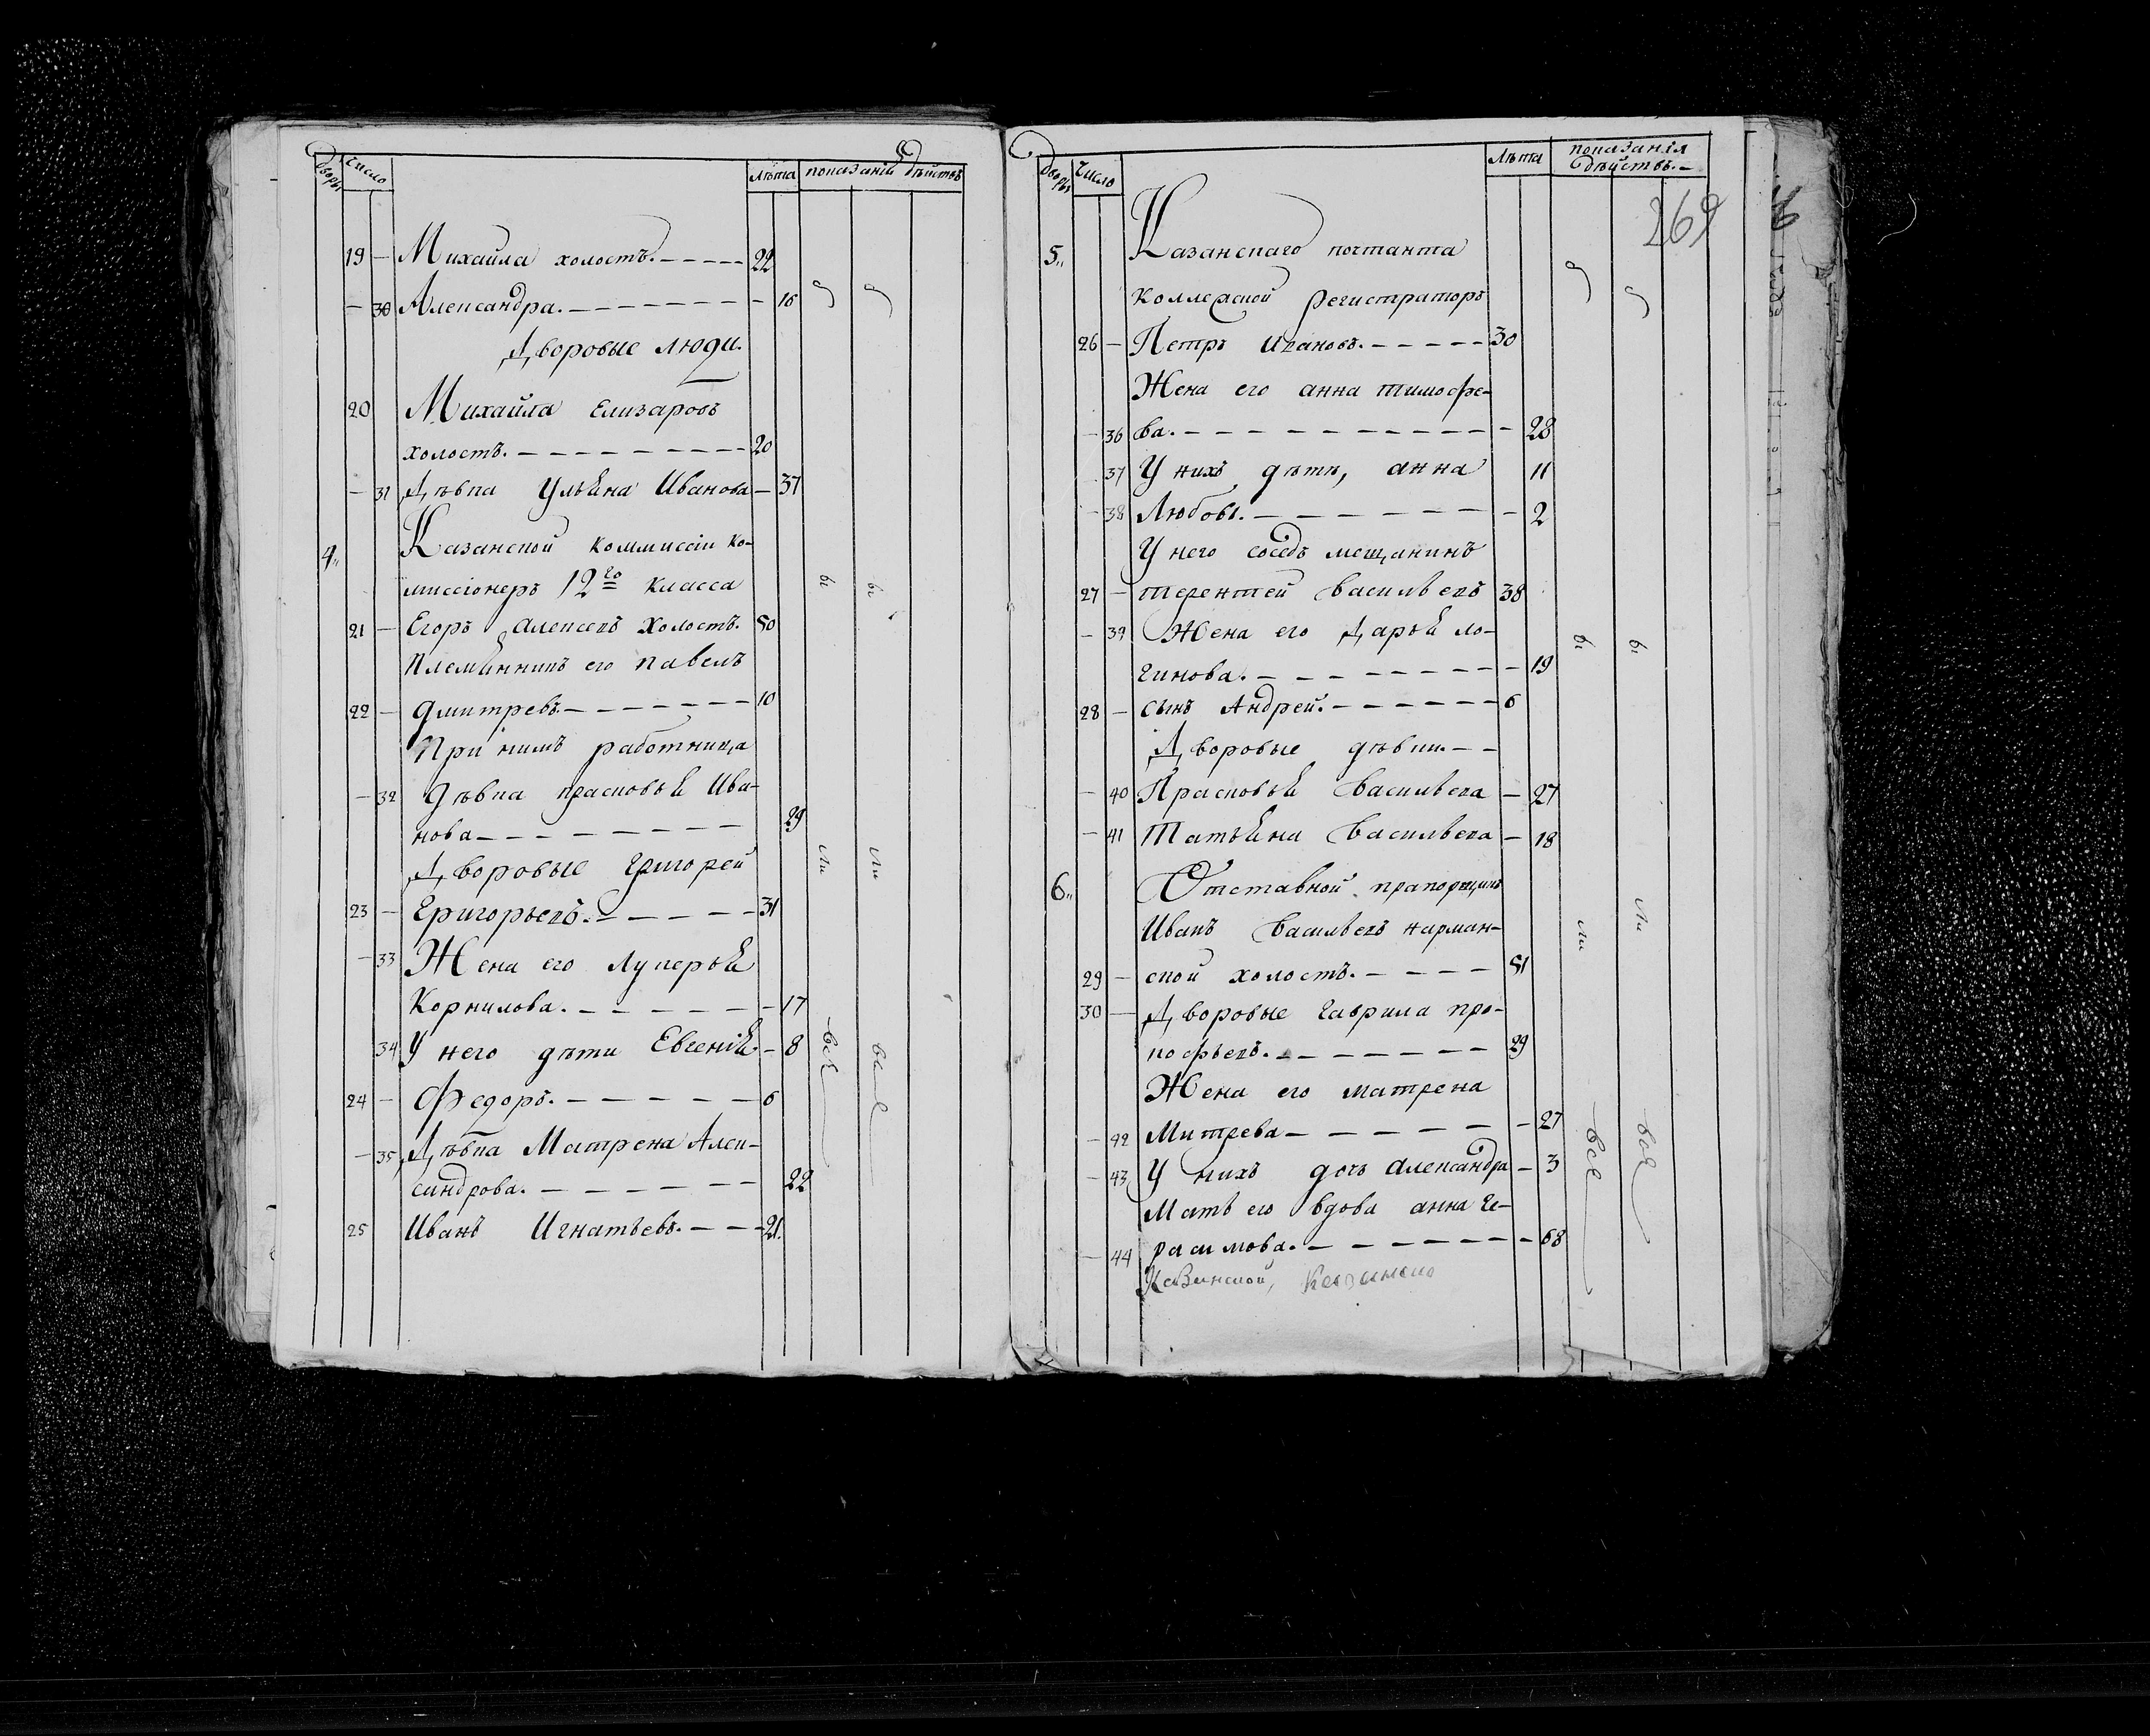 дворы число лѣта показаніи дѣйствъ
19 — Михаила холостъ. 22
— 30 Александра. — 16
Дворовые люди.
20 Михайла Елизаровъ
холостъ. 20
— 31 Дѣвка Ульяна Иванова — 37
4. Казанской Коммиссіи ко-
миссіонеръ 12го класса
21 — Егоръ Алексеевъ холостъ. 50
Племянникъ его павелъ
22 — дмитревъ. 10
При нимъ работница
— 32 дѣвка прасковья Ива-
нова 29
Дворовые Григорей
23 — Григорьевъ. 31
— 33 Жена его лукерья
Корнилова. — 17
34 У него дѣти Евгенія. — 8
24 — Федоръ. 6
— 35 Дѣвка Матрена Алек-
сандрова. 22
25 Иванъ Игнатьевъ. 21.
были
были
дворы Число Лѣта показанія
дѣйствъ.
269
5. Казанскаго почтамта
коллежской регистраторъ
26 — Петръ Ивановъ. 30
Жена его анна тимофе-
— 36 ва. — 28
37 У нихъ дѣти, анна 11
— 38 Любовь. — 2
У него соседъ мещанинъ
27 — терентей Васильевъ 38
— 39 Жена его Дарья ло-
гинова. — 19
28 — сынъ Андрей. 6
Дворовые дѣвки.
— 40 Прасковья Васильева — 27
— 41 Татьяна Васильева — 18
6. Отставной прапорщикъ
Иванъ Васильевъ карман-
29 — ской холостъ. 51
30 — Дворовые гаврила про-
кофьевъ. 29
Жена его матрена
— 42 Митрева — 27
— 43 У нихъ дочь александра — 3
Мать его вдова анна ге-
— 44 расимова. — 68